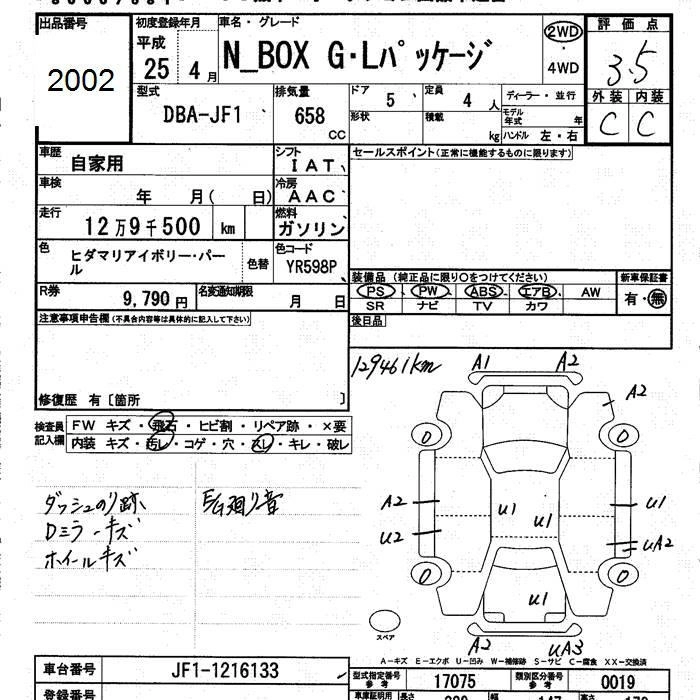 出品番号
2002
初度登録年月
平成
25 4月
車名・グレード
N_BOX G・Lパッケージ
2WD
・
4WD
評価点
3.5
外装 内装
C C
型式
DBA-JF1
排気量
658
CC
ドア
5
定員
4人
形状
積載
kg
ディーラー・並行
モデル年式 年
ハンドル 左・右
車歴
自家用
シフト
IAT
セールスポイント(正常に機能するものに限ります)
車検
年 月( 日)
冷房
AAC
走行
12万9千500 km
燃料
ガソリン
色
ヒダマリアイボリー・パール
色替
色コード
YR598P
R券
9,790円
名変通知期限
月 日
装備品(純正品に限り○をつけてください)
新車保証書
PS PW ABS エアB AW
有・無
SR ナビ TV カワ
後日品
注意事項申告欄(不具合内容等は具体的に記入して下さい)
修復歴 有〔箇所 〕
検査員記入欄
FW キズ・飛石・ヒビ割・リペア跡・×要
内装 キズ・汚レ・コゲ・穴・スレ・キレ・破レ
129461km
A1 A2
A2
A2
U2
U1
UA2
U1
U1
U1
A2
UA3
スペア
ダッシュのり跡
Dミラーキズ
ホイールキズ
E/G廻り音
A-キズ E-エクボ U-凹み W-補修跡 S-サビ C-腐食 XX-交換済
車台番号
JF1-1216133
型式指定番号
参考
17075
類別区分番号
参考
0019
登録番号
車庫証明用
参考
長さ
幅
高さ